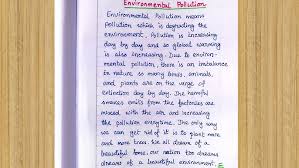 Environmental Pollution
Environmental Pollution means
Pollution which is degrading the
environment. Pollution is increasing
day by day and so global warming
is also increasing. Due to environ-
mental pollution, there is an imbalance
in nature so many birds, animals,
and plants are on the verge of
extinction day by day. The harmful
smokes emits from the factories are
mixed with the air and increasing
the pollution everytime. The only way
we can get rid of it is to plant more
and more trees. We all dream of a
beautiful home, our nation too dreams
dreams of a beautiful environment.